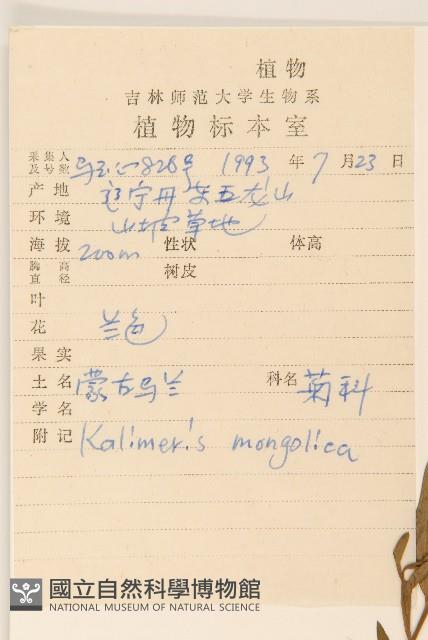 植物
吉林师范大学生物系
植物标本室
采集人及号数 828号 1993 年 7 月 23 日
产地 辽宁丹东五龙山
环境 山坡草地
海拔 200m 性状 体高
胸高直径 树皮
叶
花 兰色
果实
土名 蒙古马兰 科名 菊科
学名
附记 Kalimeris mongolica
國立自然科學博物館
NATIONAL MUSEUM OF NATURAL SCIENCE